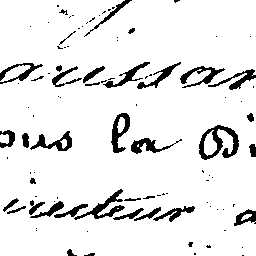 aussan
ous la Di
irecteur d